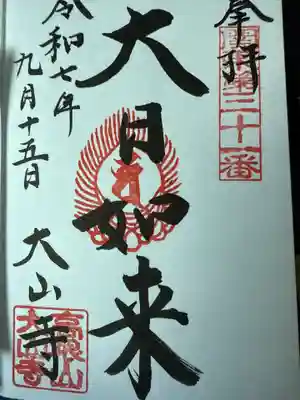 奉拝
大日如来
令和七年
九月十五日
大山寺
高根山
大山寺